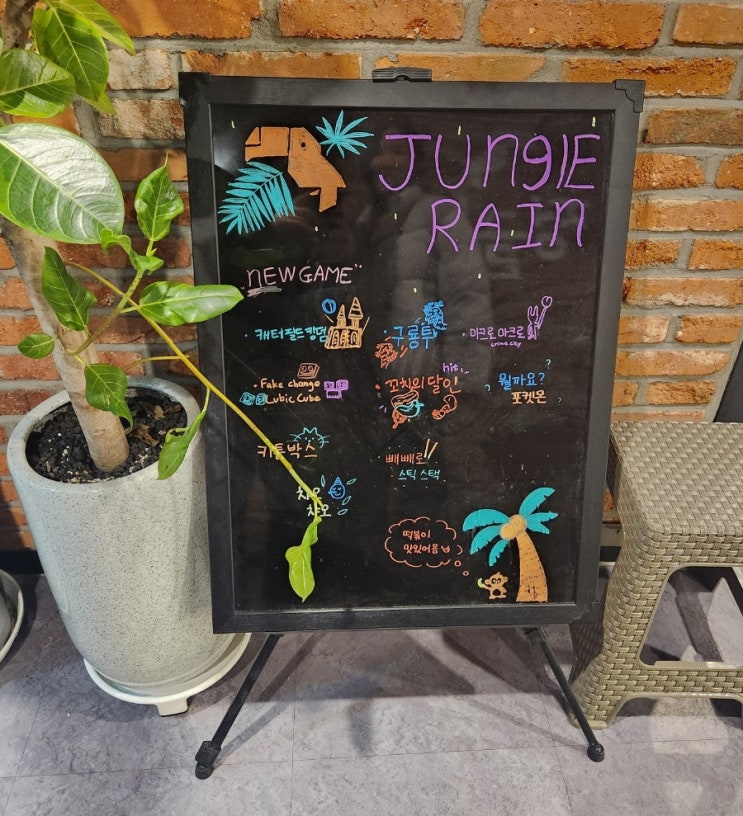 JUNGLE
RAIN
NEW GAME
· 캐터필드킹덤
· 구룡투
· 마크로 마크로
crime city
· Fake change
Lubic Cube
hit!
· 꼬치의 달인
? 뭘까요?
포켓몬
· 키톤박스
· 빼빼로
스틱 스택
· 차오
챠오
떡볶이
맛있어용